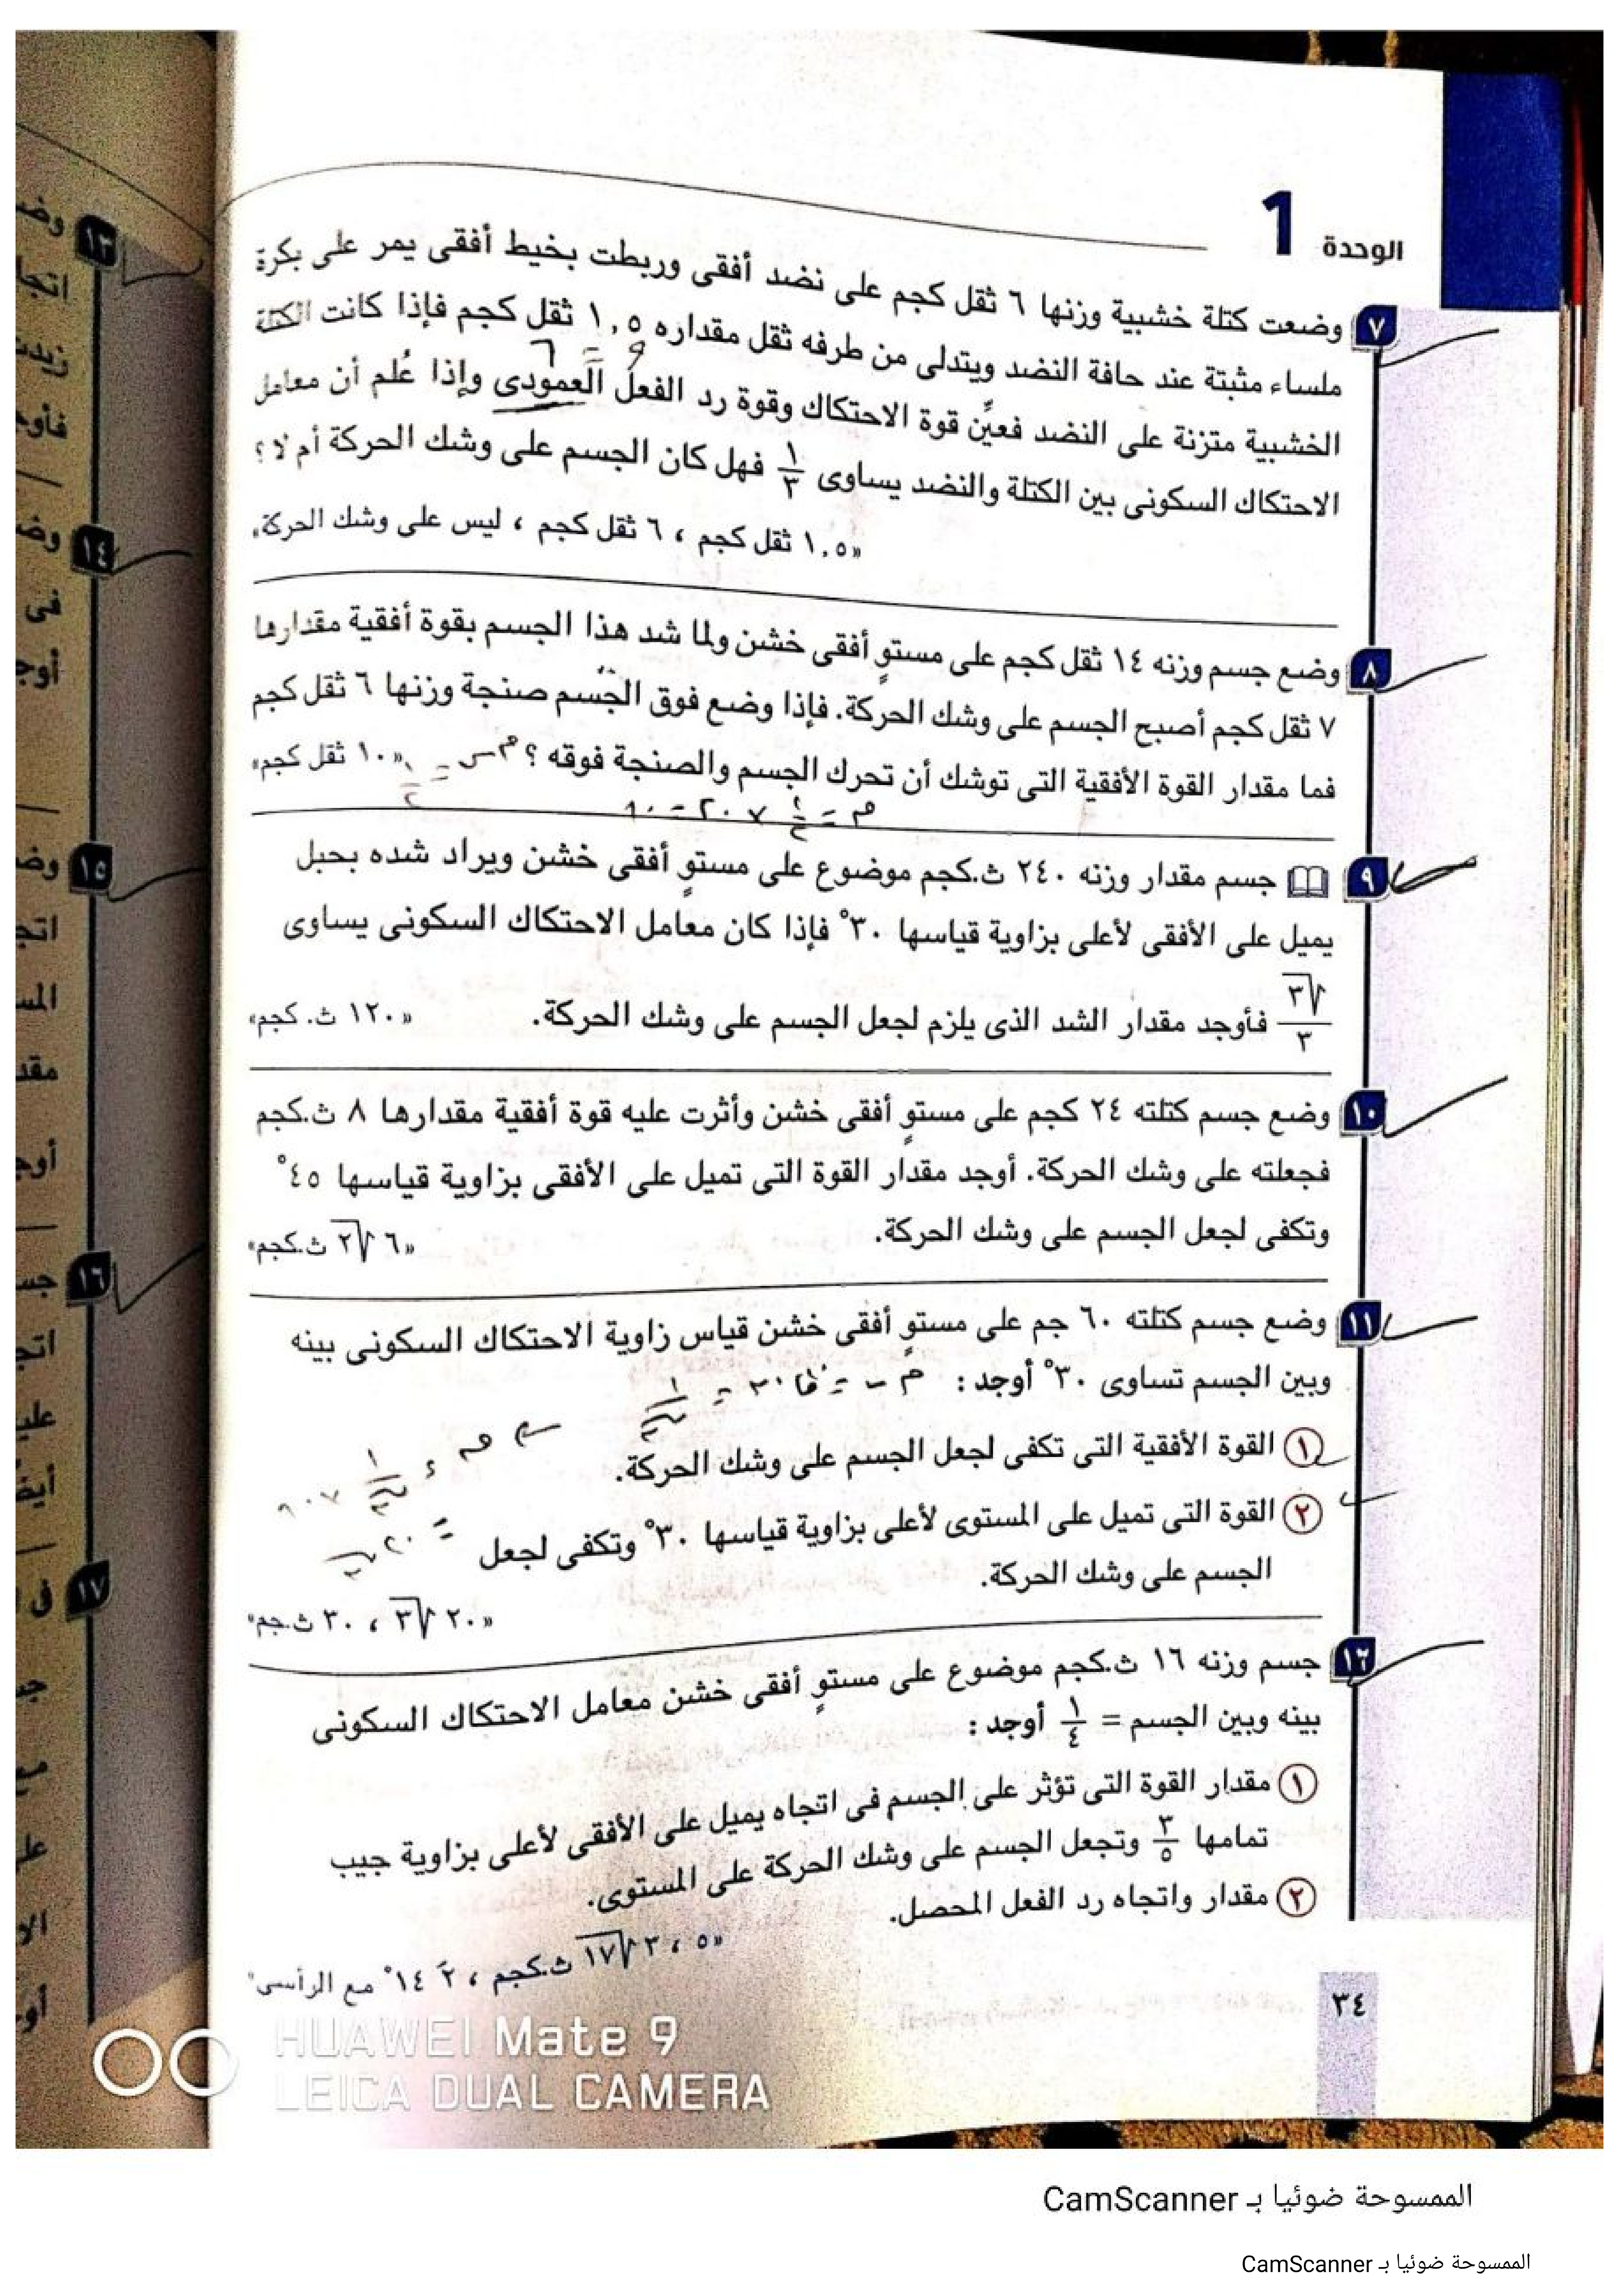 الوحدة 1
٧ وضعت كتلة خشبية وزنها ٦ ثقل كجم على نضد أفقى وربطت بخيط أفقى يمر على بكرة
ملساء مثبتة عند حافة النضد ويتدلى من طرفه ثقل مقداره ١,٥ ثقل كجم فإذا كانت الكتلة
الخشبية متزنة على النضد فعيِّن قوة الاحتكاك وقوة رد الفعل العمودى وإذا عُلم أن معامل
الاحتكاك السكونى بين الكتلة والنضد يساوى ١/٣ فهل كان الجسم على وشك الحركة أم لا ؟
«١,٥ ثقل كجم ، ٦ ثقل كجم ، ليس على وشك الحركة»
٨ وضع جسم وزنه ١٤ ثقل كجم على مستوٍ أفقى خشن ولما شد هذا الجسم بقوة أفقية مقدارها
٧ ثقل كجم أصبح الجسم على وشك الحركة. فإذا وضع فوق الجسم صنجة وزنها ٦ ثقل كجم
فما مقدار القوة الأفقية التى توشك أن تحرك الجسم والصنجة فوقه ؟ «١٠ ثقل كجم»
٩ جسم مقدار وزنه ٢٤٠ ث.كجم موضوع على مستوٍ أفقى خشن ويراد شده بحبل
يميل على الأفقى لأعلى بزاوية قياسها ٣٠° فإذا كان معامل الاحتكاك السكونى يساوى
√٣/٣ فأوجد مقدار الشد الذى يلزم لجعل الجسم على وشك الحركة. «١٢٠ ث. كجم»
١٠ وضع جسم كتلته ٢٤ كجم على مستوٍ أفقى خشن وأثرت عليه قوة أفقية مقدارها ٨ ث.كجم
فجعلته على وشك الحركة. أوجد مقدار القوة التى تميل على الأفقى بزاوية قياسها ٤٥°
وتكفى لجعل الجسم على وشك الحركة. «٦√٢ ث.كجم»
١١ وضع جسم كتلته ٦٠ جم على مستوٍ أفقى خشن قياس زاوية الاحتكاك السكونى بينه
وبين الجسم تساوى ٣٠° أوجد :
١ القوة الأفقية التى تكفى لجعل الجسم على وشك الحركة.
٢ القوة التى تميل على المستوى لأعلى بزاوية قياسها ٣٠° وتكفى لجعل
الجسم على وشك الحركة.
«٢٠√٣ ، ٣٠ ث.جم»
١٢ جسم وزنه ١٦ ث.كجم موضوع على مستوٍ أفقى خشن معامل الاحتكاك السكونى
بينه وبين الجسم = ١/٤ أوجد :
١ مقدار القوة التى تؤثر على الجسم فى اتجاه يميل على الأفقى لأعلى بزاوية جيب
تمامها ٣/٥ وتجعل الجسم على وشك الحركة على المستوى.
٢ مقدار واتجاه رد الفعل المحصل.
«٥ ، ٣√١٧ ث.كجم ، ٢ َ ١٤° مع الرأسى»
٣٤
HUAWEI Mate 9
LEICA DUAL CAMERA
الممسوحة ضوئيا بـ CamScanner
الممسوحة ضوئيا بـ CamScanner